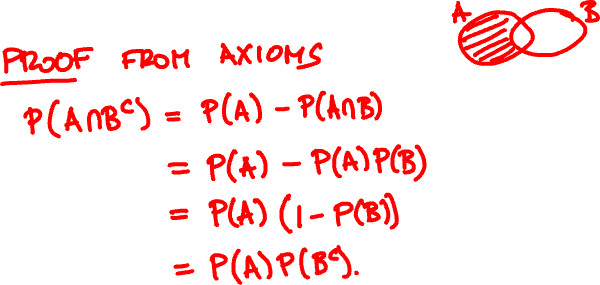 A B
PROOF FROM AXIOMS
P(A∩Bᶜ) = P(A) - P(A∩B)
= P(A) - P(A)P(B)
= P(A) (1 - P(B))
= P(A)P(Bᶜ).